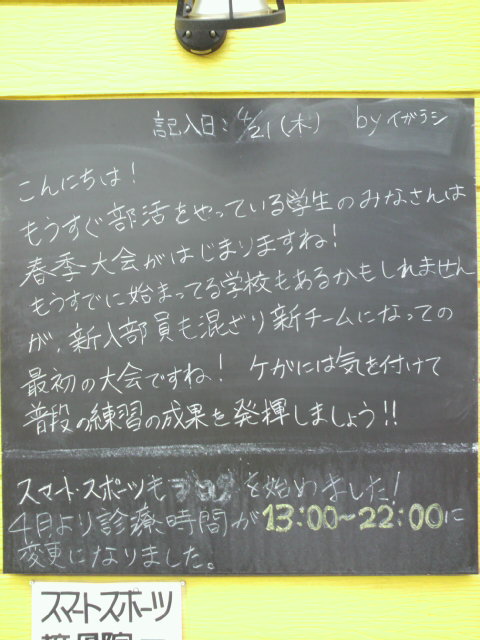 記入日：4/21(木) by イガラシ
こんにちは！
もうすぐ部活をやっている学生のみなさんは
春季大会がはじまりますね！
もうすでに始まってる学校もあるかもしれません
が、新入部員も混ざり新チームになっての
最初の大会ですね！ ケガには気を付けて
普段の練習の成果を発揮しましょう!!
スマートスポーツもブログを始めました！
4月より診療時間が13:00～22:00に
変更になりました。
スマートスポーツ